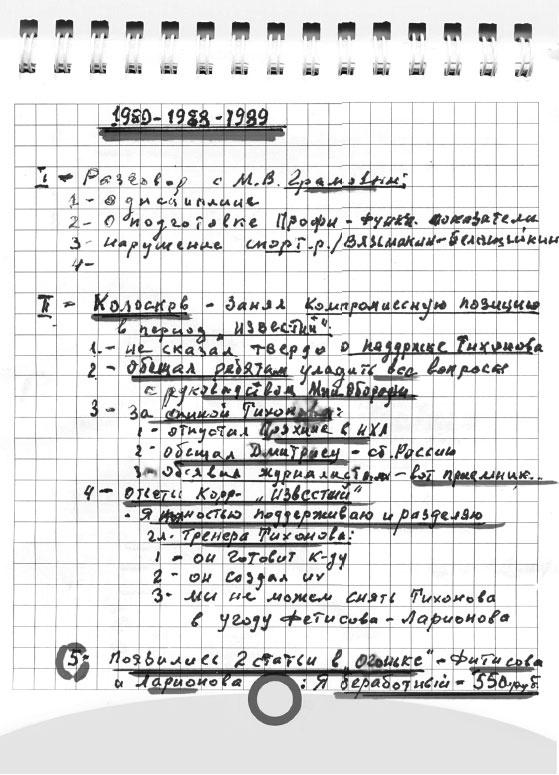 1980-1988-1989
I - Разговор с М.В. Грамовым:
1- о дисциплине
2- о подготовке Профи - функц. показатели
3- нарушение спорт.р./Вязьмикин-Белошейкин
4-
II - Колосков - Занял Компромиссную позицию
в период "Известий":
1- не сказал твердо о поддержке Тихонова
2- Обещал ребятам уладить все вопросы
с руководством Мин Обороны
3- За спиной Тихонова:
1- отпустил Пряхина в НХЛ
2- обещал Дмитриеву - сб. России
3- объявил журналистам - вот приемник...
4- Ответы Корр- "Известий"
- Я полностью поддерживаю и разделяю
гл. тренера Тихонова:
1- он готовит к-ду
2- он создал их
3- мы не можем снять Тихонова
в угоду Фетисова-Ларионова
5- Появились 2 статьи в "Огоньке"-Фитисова
и Ларионова : Я безработный - 550 руб.